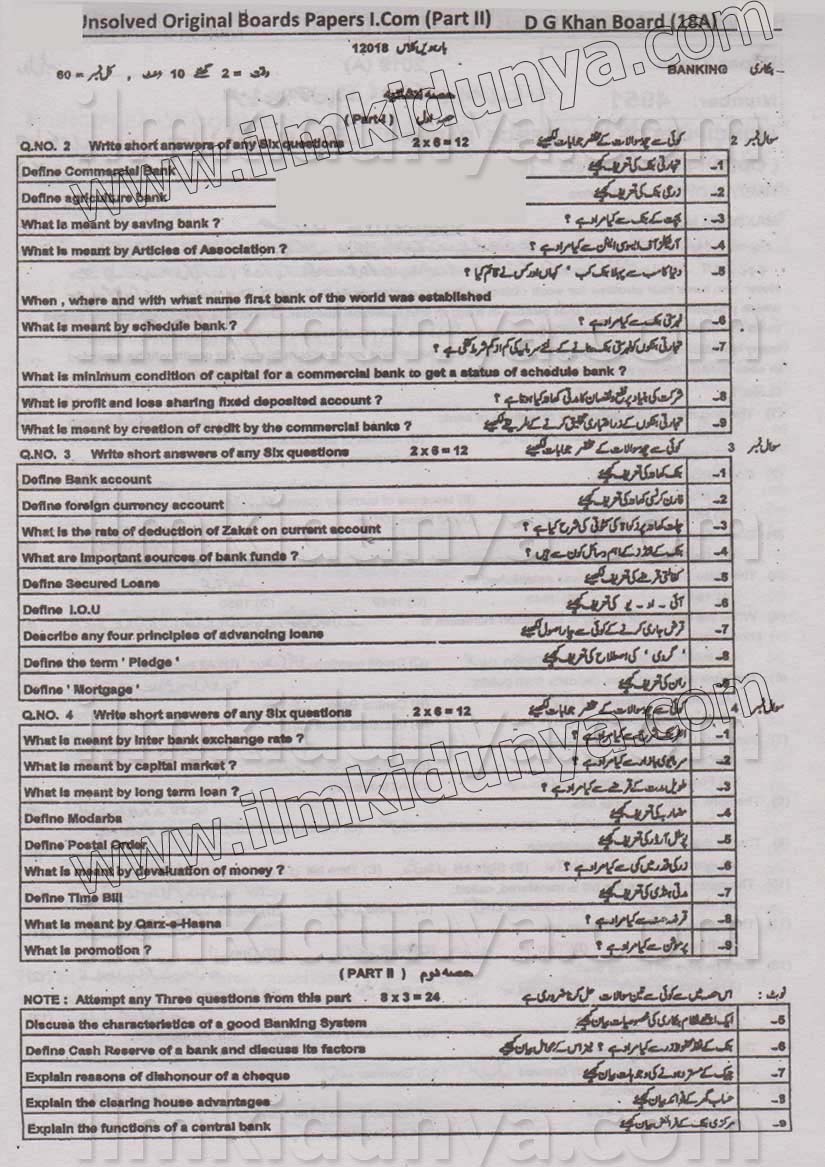 Unsolved Original Boards Papers I.Com (Part II) D G Khan Board (18A)
12018 بارہویں کلاس
بنکاری BANKING وقت = 2 گھنٹے 10 منٹ ، کل نمبر = 60
حصہ انشائیہ
( Part-I ) حصہ اول
Q.NO. 2 Write short answers of any Six questions 2 x 6 = 12 کوئی سے چھ سوالات کے مختصر جوابات لکھیئے سوال نمبر 2
Define Commercial Bank تجارتی بنک کی تعریف کیجیئے 1–
Define agriculture bank زرعی بنک کی تعریف کیجیئے 2–
What is meant by saving bank ? بچت کے بنک سے کیا مراد ہے ؟ 3–
What is meant by Articles of Association ? آرٹیکلز آف ایسوسی ایشن سے کیا مراد ہے ؟ 4–
دنیا کا سب سے پہلا بنک کب ' کہاں اور کس نے قائم کیا ؟ 5–
When , where and with what name first bank of the world was established
What is meant by schedule bank ? فہرستی بنک سے کیا مراد ہے ؟ 6–
تجارتی بنکوں کو فہرستی بنک بنانے کے لئے سرمایہ کی کم از کم شرط کتنی ہے ؟ 7–
What is minimum condition of capital for a commercial bank to get a status of schedule bank ?
What is profit and loss sharing fixed deposited account ? شرکت کی بنیاد پر نفع و نقصان کا مدتی کھاتہ کیا ہوتا ہے ؟ 8–
What is meant by creation of credit by the commercial banks ? تجارتی بنکوں کے زر اعتباری تخلیق کرنے کے طریقے لکھیئے 9–
Q.NO. 3 Write short answers of any Six questions 2 x 6 = 12 کوئی سے چھ سوالات کے مختصر جوابات لکھیئے سوال نمبر 3
Define Bank account بنک کھاتہ کی تعریف کیجیئے 1–
Define foreign currency account فارن کرنسی کھاتہ کی تعریف کیجیئے 2–
What is the rate of deduction of Zakat on current account چلت کھاتہ پر زکوٰۃ کی کٹوتی کی شرح کیا ہے ؟ 3–
What are important sources of bank funds ? بنک کے فنڈز کے اہم وسائل کون سے ہیں ؟ 4–
Define Secured Loans کفالتی قرضے کی تعریف لکھیئے 5–
Define I.O.U آئی - او - یو کی تعریف کیجیئے 6–
Describe any four principles of advancing loans قرض جاری کرنے کے کوئی سے چار اصول لکھیئے 7–
Define the term ' Pledge ' ' گروی ' کی اصطلاح کی تعریف کیجیئے 8–
Define ' Mortgage ' رہن کی تعریف کیجیئے 9–
Q.NO. 4 Write short answers of any Six questions 2 x 6 = 12 کوئی سے چھ سوالات کے مختصر جوابات لکھیئے سوال نمبر 4
What is meant by inter bank exchange rate ? سے کیا مراد ہے ؟ 1–
What is meant by capital market ? سے کیا مراد ہے ؟ 2–
What is meant by long term loan ? طویل مدت کے قرضے سے کیا مراد ہے ؟ 3–
Define Modarba مضاربہ کی تعریف کیجیئے 4–
Define Postal Order پوسٹل آرڈر کی تعریف کیجیئے 5–
What is meant by devaluation of money ? زر کی قدر میں کمی سے کیا مراد ہے ؟ 6–
Define Time Bill مدتی ہنڈی کی تعریف کیجیئے 7–
What is meant by Qarz-e-Hasna قرضہ حسنہ سے کیا مراد ہے ؟ 8–
What is promotion ? پرموشن سے کیا مراد ہے ؟ 9–
( PART II ) حصہ دوم
NOTE : Attempt any Three questions from this part 8 x 3 = 24 اس حصہ میں سے کوئی سے تین سوالات حل کرنا ضروری ہے نوٹ :
Discuss the characteristics of a good Banking System ایک اچھے نظام بنکاری کی خصوصیات بیان کیجیئے 5–
Define Cash Reserve of a bank and discuss its factors بنک کے نقد محفوظ زر سے کیا مراد ہے ؟ نیز اس کے عوامل بیان کیجیئے 6–
Explain reasons of dishonour of a cheque چیک کے مسترد ہونے کی وجوہات بیان کیجیئے 7–
Explain the clearing house advantages حساب گھر کے فوائد بیان کیجیئے 8–
Explain the functions of a central bank مرکزی بنک کے فرائض بیان کیجیئے 9–
www.ilmkidunya.com
www.ilmkidunya.com
ilmkidunya.com